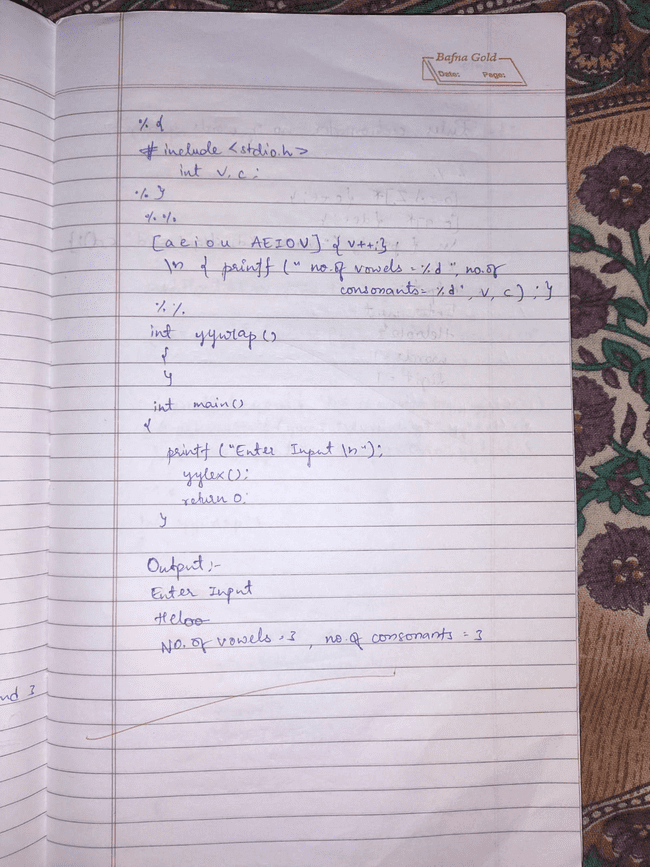 Bafna Gold
Date: Page:
%{
# include <stdio.h>
int v, c;
%}
%%
[aeiou AEIOU] {v++;}
\n { printf (" no. of vowels = %d ", no. of
consonants = %d", v, c) ; }
%%
int yywrap()
{
}
int main()
{
printf ("Enter Input \n");
yylex();
return 0;
}
Output :-
Enter Input
No. of vowels = 3 , no. of consonants = 3
nd 3